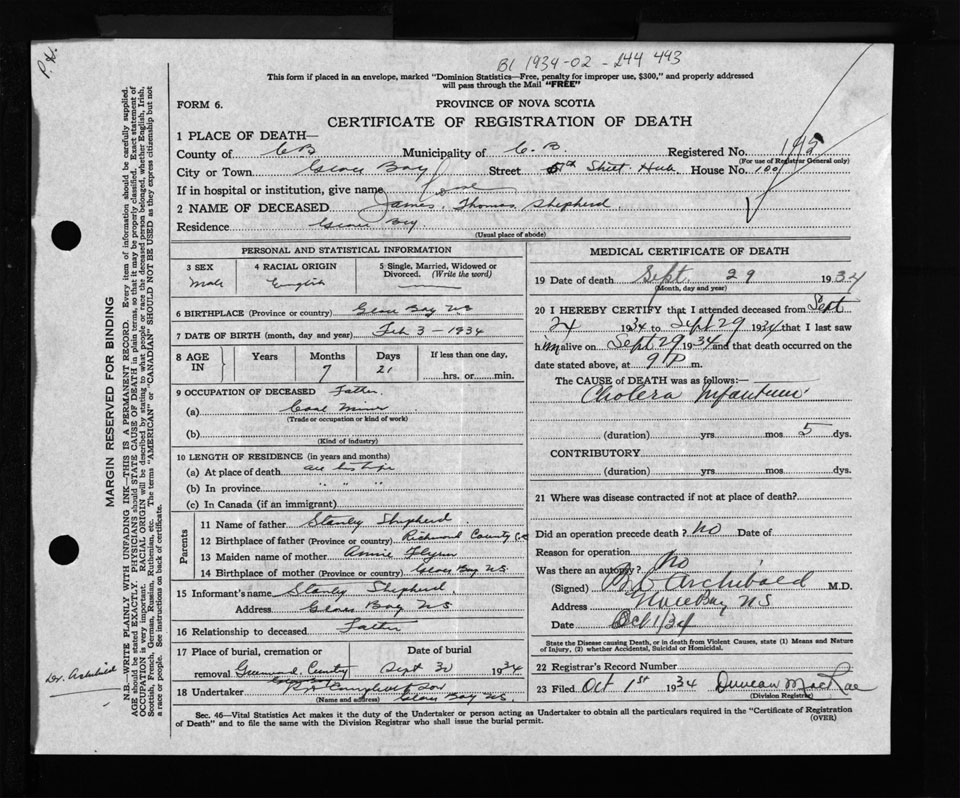 P.H.
Bl 1934-02-244 443
This form if placed in an envelope, marked "Dominion Statistics—Free, penalty for improper use, $300," and properly addressed
will pass through the Mail "FREE"
FORM 6.
PROVINCE OF NOVA SCOTIA
CERTIFICATE OF REGISTRATION OF DEATH
1 PLACE OF DEATH—
County of CB Municipality of C. B. Registered No. 145
(For use of Registrar General only)
City or Town Glace Bay Street Street Hub House No. 100
If in hospital or institution, give name
2 NAME OF DECEASED James Thomas Shepherd
Residence Glace Bay
(Usual place of abode)
PERSONAL AND STATISTICAL INFORMATION
3 SEX Male
4 RACIAL ORIGIN English
5 Single, Married, Widowed or Divorced. (Write the word)
6 BIRTHPLACE (Province or country) Glace Bay NS
7 DATE OF BIRTH (month, day and year) Feb 3 - 1934
8 AGE IN Years Months 7 Days 21 If less than one day, hrs. or min.
9 OCCUPATION OF DECEASED Father
(a) Coal Miner
(Trade or occupation or kind of work)
(b)
(Kind of industry)
10 LENGTH OF RESIDENCE (in years and months)
(a) At place of death all his life
(b) In province " " "
(c) In Canada (if an immigrant)
Parents
11 Name of father Stanley Shepherd
12 Birthplace of father (Province or country) Richmond County
13 Maiden name of mother Annie Flynn
14 Birthplace of mother (Province or country) Glace Bay NS
15 Informant's name Stanley Shepherd
Address Glace Bay NS
16 Relationship to deceased Father
17 Place of burial, cremation or removal Greenwood Date of burial Sept 30 1934
18 Undertaker
(Name and address) Glace Bay NS
MEDICAL CERTIFICATE OF DEATH
19 Date of death Sept. 29 1934
(Month, day and year)
20 I HEREBY CERTIFY that I attended deceased from Sept
24 1934 to Sept 29 1934 that I last saw
him alive on Sept 29 1934 and that death occurred on the
date stated above, at 9 P m.
The CAUSE of DEATH was as follows:—
Cholera Infantum
(duration) yrs mos 5 dys.
CONTRIBUTORY
(duration) yrs mos dys.
21 Where was disease contracted if not at place of death?
Did an operation precede death? No Date of
Reason for operation
Was there an autopsy? No
(Signed) Archibald M.D.
Address Glace Bay NS
Date Oct 1/34
State the Disease causing Death, or in death from Violent Causes, state (1) Means and Nature
of Injury, (2) whether Accidental, Suicidal or Homicidal.
22 Registrar's Record Number
23 Filed Oct 1st 1934 Duncan MacRae
(Division Registrar)
Sec. 46—Vital Statistics Act makes it the duty of the Undertaker or person acting as Undertaker to obtain all the particulars required in the "Certificate of Registration
of Death" and to file the same with the Division Registrar who shall issue the burial permit.
(OVER)
MARGIN RESERVED FOR BINDING
N.B.—WRITE PLAINLY WITH UNFADING INK—THIS IS A PERMANENT RECORD. Every item of information should be carefully supplied.
AGE should be stated EXACTLY. PHYSICIANS should STATE CAUSE OF DEATH in plain terms, so that it may be properly classified. Exact statement of
OCCUPATION is very important. RACIAL ORIGIN will be described by stating to what people or race the deceased person belonged, whether English, Irish,
Scottish, French, German, Russian, Ruthenian, etc. The terms "AMERICAN" or "CANADIAN" SHOULD NOT BE USED as they express citizenship but not
a race or people. See instructions on back of certificate.
Dr. Archibald